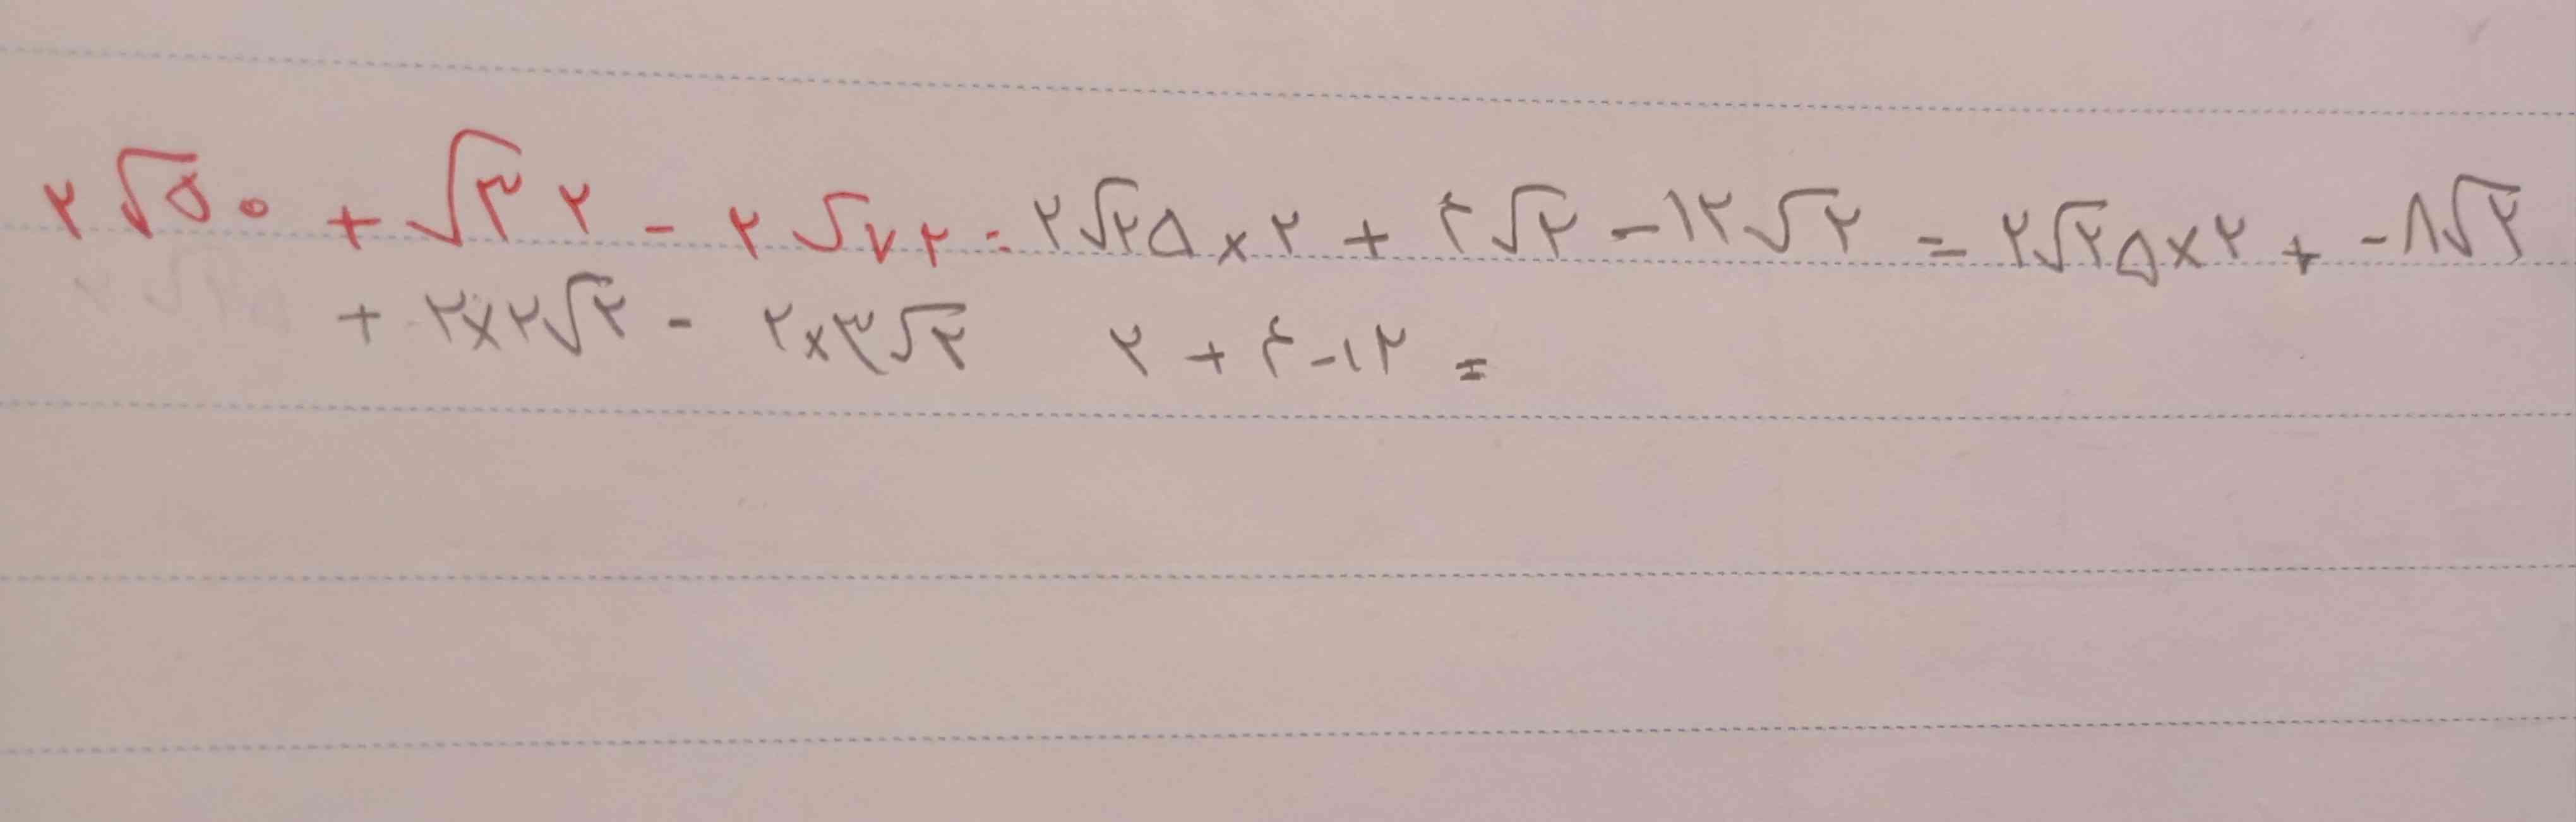 ۲√۵۰ + √۳۲ - ۲√۷۲ = ۲√۲۵×۲ + ۴√۲ - ۱۲√۲ = ۲√۲۵×۲ + -۸√۲
+ ۲×۲√۲ - ۲×۳√۲ ۲ + ۴ - ۱۲ =